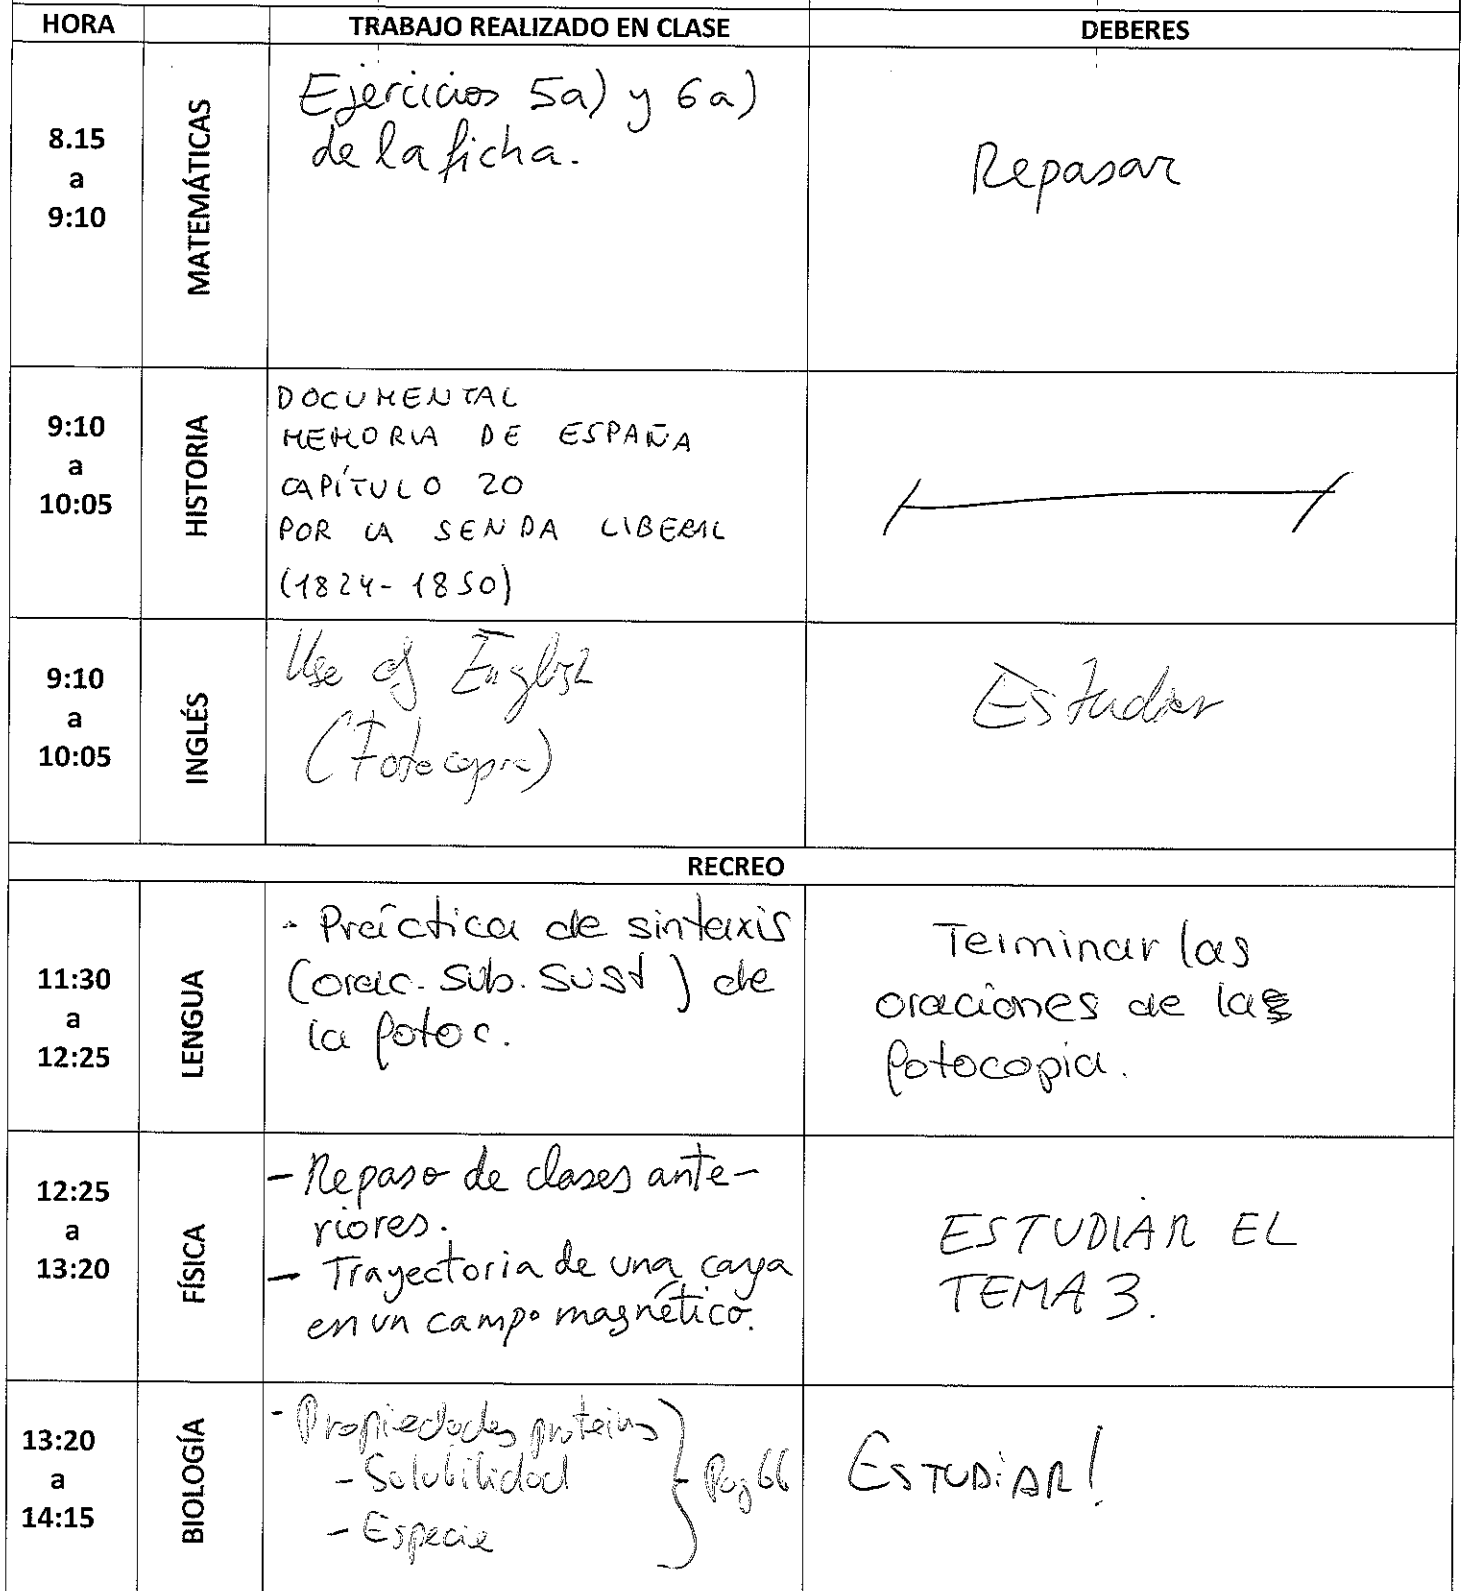 HORA TRABAJO REALIZADO EN CLASE DEBERES
8.15
a
9:10
MATEMÁTICAS
Ejercicios 5a) y 6a)
de la ficha.
Repasar
9:10
a
10:05
HISTORIA
DOCUMENTAL
MEMORIA DE ESPAÑA
CAPÍTULO 20
POR LA SENDA LIBERAL
(1824-1850)
9:10
a
10:05
INGLÉS
Use of English
(Fotocopia)
Estudiar
RECREO
11:30
a
12:25
LENGUA
- Práctica de sintaxis
(orac. sub. sust) de
la fotoc.
Terminar las
oraciones de la
fotocopia.
12:25
a
13:20
FÍSICA
- Repaso de clases ante-
riores.
- Trayectoria de una carga
en un campo magnético.
ESTUDIAR EL
TEMA 3.
13:20
a
14:15
BIOLOGÍA
- Propiedades proteins
- Solubilidad
- Especie
Pag 66
ESTUDIAR!